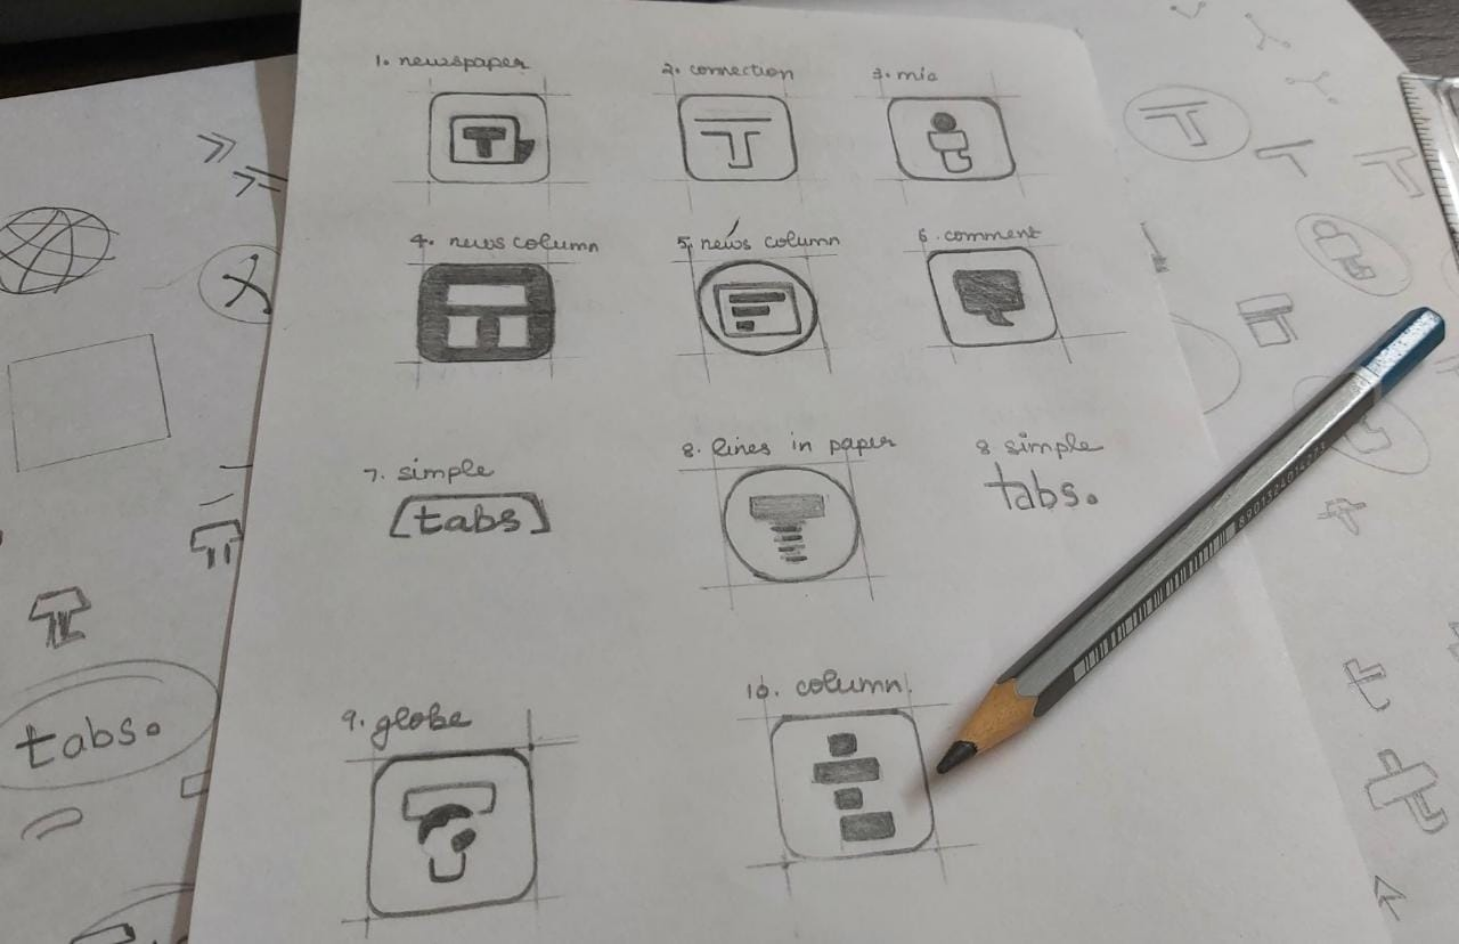 1. newspaper
2. connection
3. mic
T
T
4. news column
5. news column
6. comment
7. simple
[tabs]
8. lines in paper
8 simple
tabs.
9. globe
10. column
tabs.